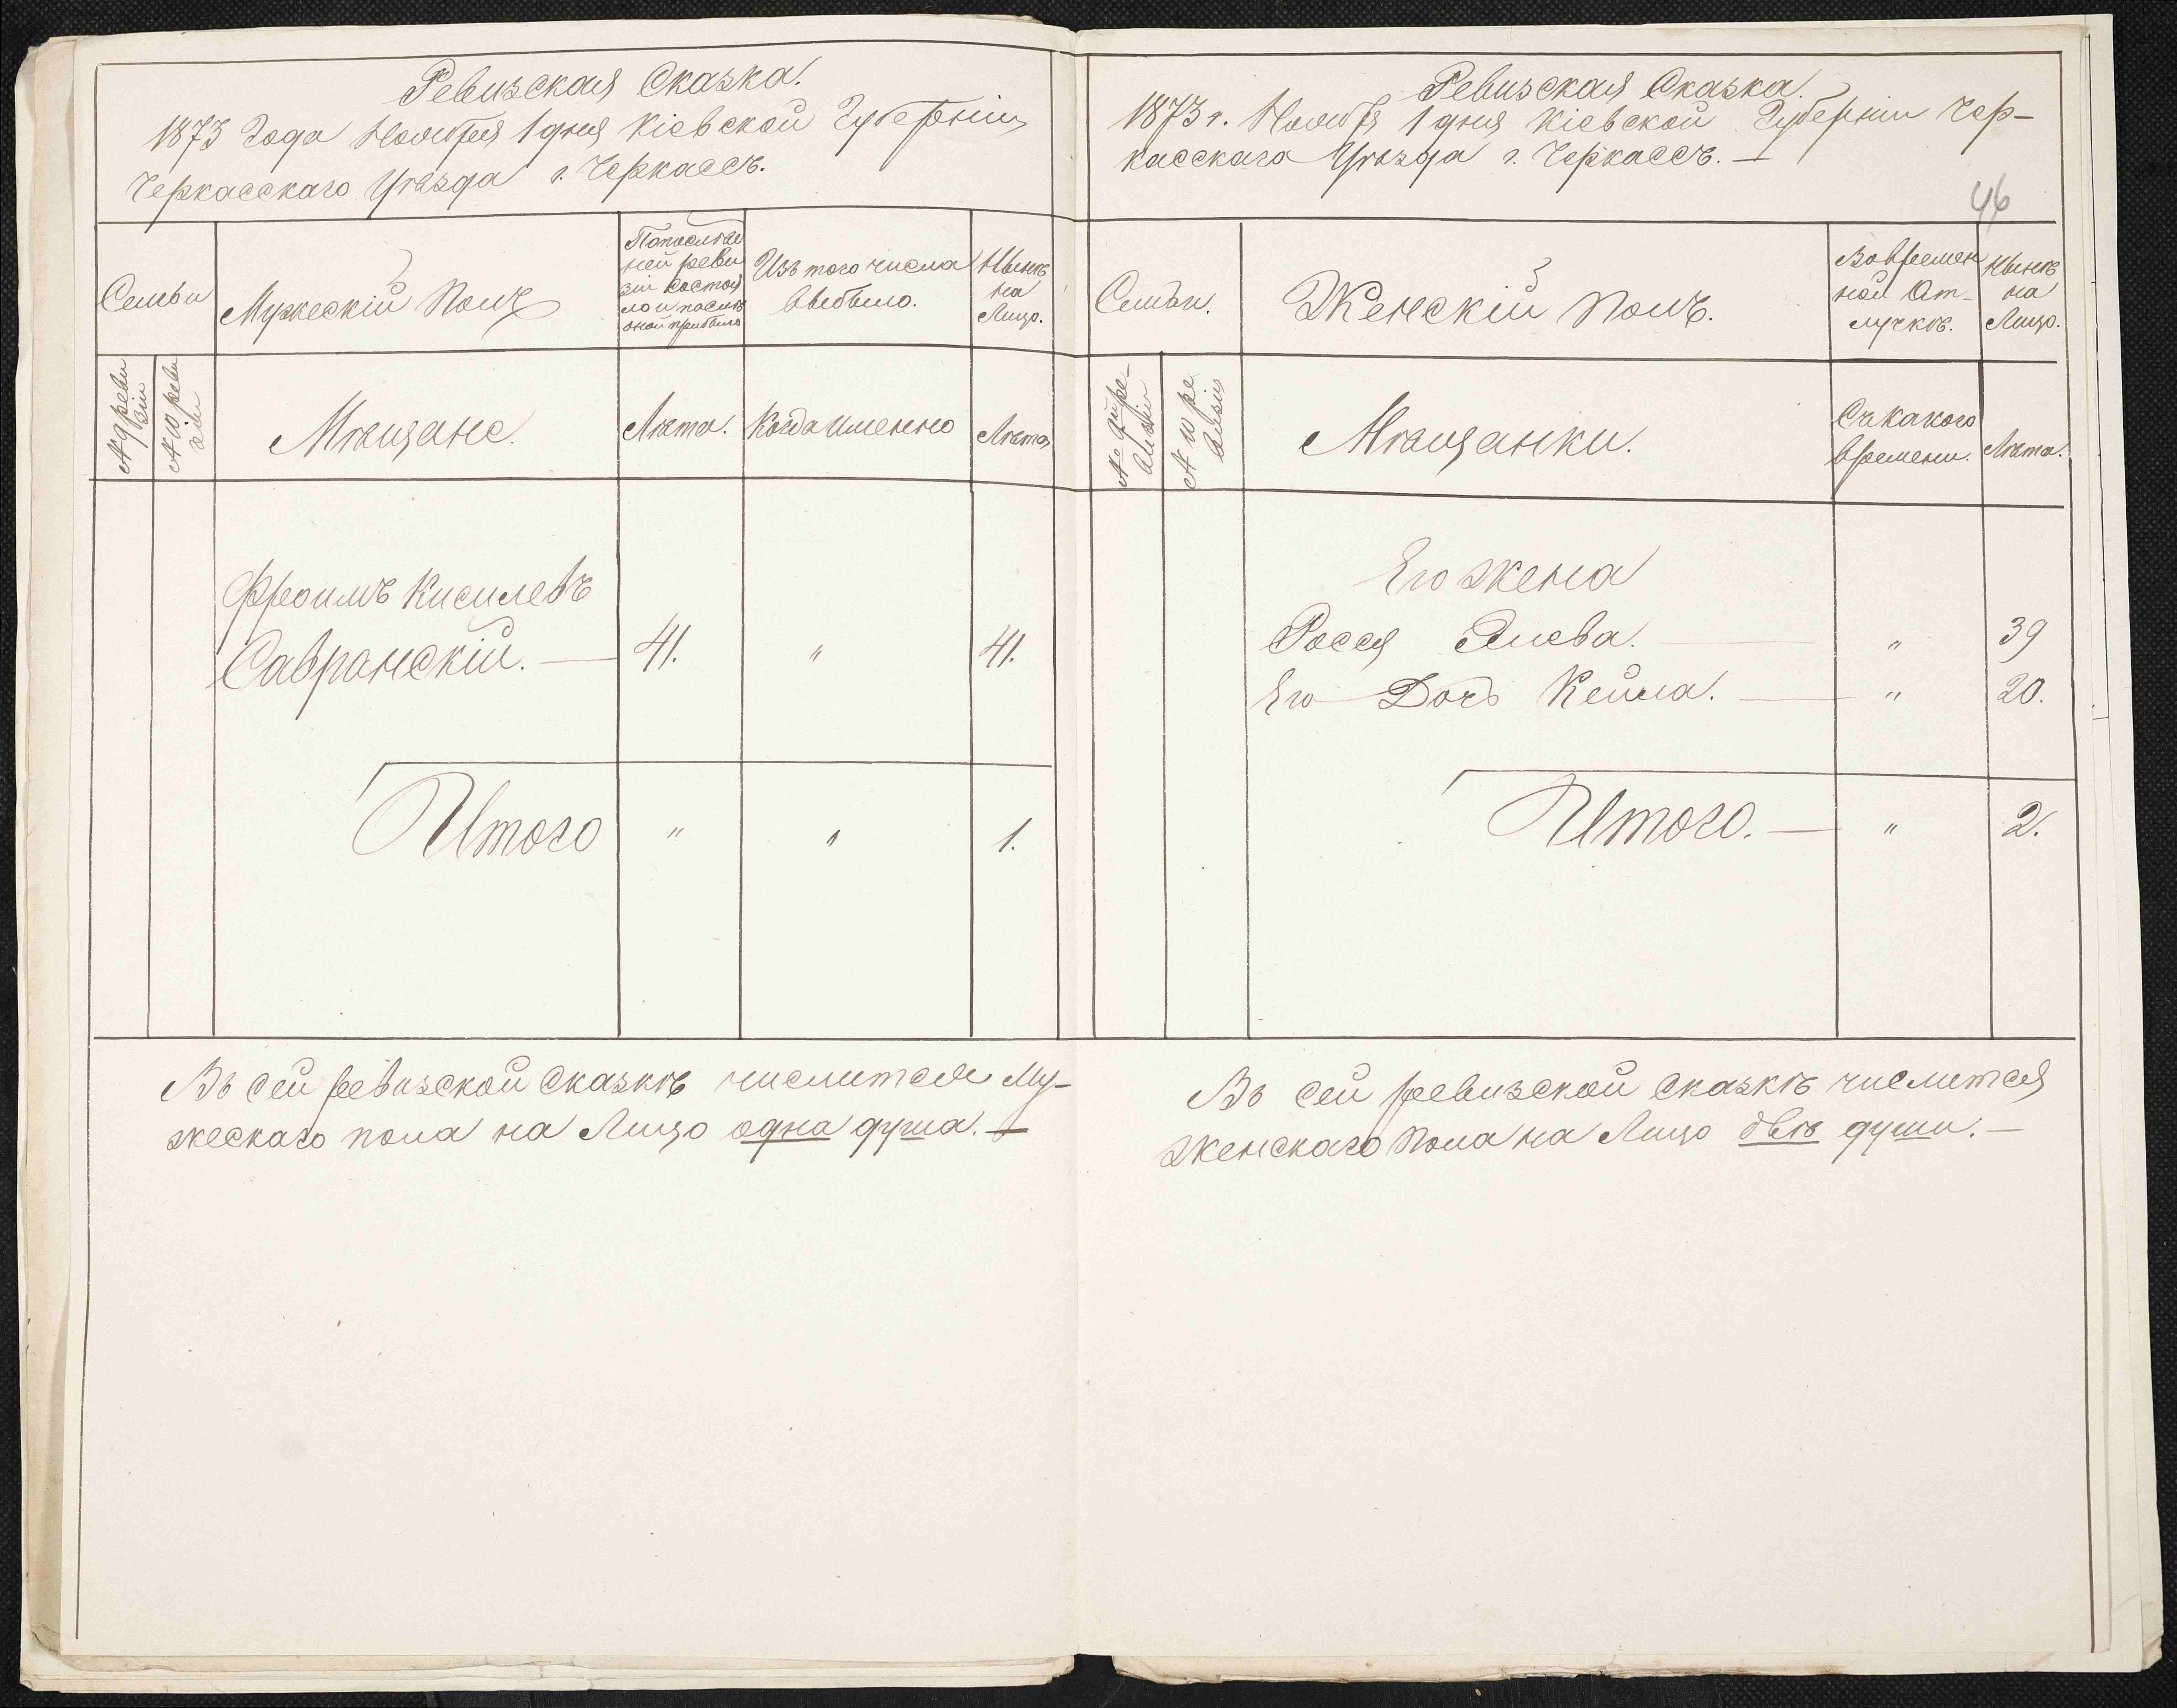 Ревизская Сказка.
1873 Года Ноября 1 дня Кіевской Губерніи
Черкасскаго Уѣзда г. Черкассъ.
Семьи
Мужескій Полъ
По послѣд
ней реви
зіи состоя
ло и послѣ
оной прибыло
Изъ того числа
выбыло.
Нынѣ
на
Лицо.
№ 9 реви
зіи
№ 10 реви
зіи
Мѣщане.
Лѣта.
Когда именно
Лѣта
Фроимъ Кисилевъ
Савранскій. — 41. " 41.
Итого " " 1.
Въ сей ревизской Сказкѣ числится Му-
жескаго пола на Лицо одна душа. —
Ревизская Сказка.
1873 г. Ноября 1 дня Кіевской Губерніи Чер-
касскаго Уѣзда г. Черкассъ. —
46
Семьи.
Женскій Полъ.
Во времен
ной От-
лучкѣ.
Нынѣ
на
Лицо.
№ 9 ре-
визіи
№ 10 ре
визіи
Мѣщанки.
Съ какого
времени.
Лѣта.
Его жена
Рося Элева. — " 39
Его Дочь Кейла. — " 20.
Итого. — " 2.
Въ сей ревизской сказкѣ числится
женскаго пола на Лицо двѣ души. —